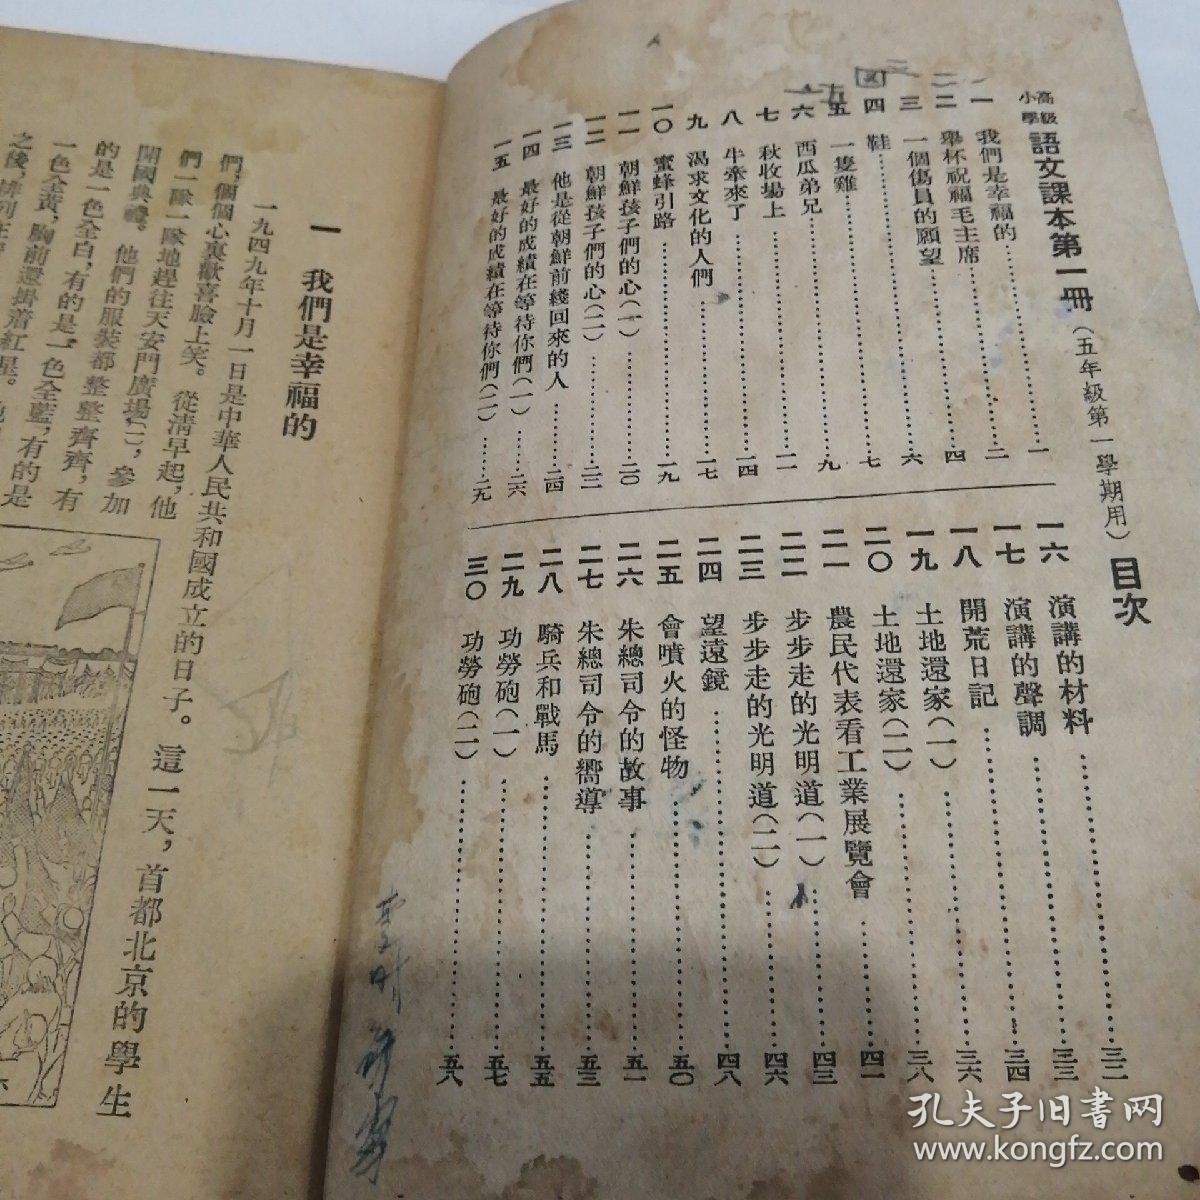 高級小學 語文課本第一冊（五年級第一學期用）目次
一 我們是幸福的……一
二 舉杯祝福毛主席……二
三 一個傷員的願望……四
四 鞋……六
五 一隻雞……七
六 西瓜弟兄……九
七 秋收場上……一一
八 牛牽來了……一四
九 渴求文化的人們……一七
一〇 蜜蜂引路……一九
一一 朝鮮孩子們的心（一）……二〇
一二 朝鮮孩子們的心（二）……二二
一三 他是從朝鮮前綫回來的人……二四
一四 最好的成績在等待你們（一）……二六
一五 最好的成績在等待你們（二）……二九
一六 演講的材料……三二
一七 演講的聲調……三三
一八 開荒日記……三四
一九 土地還家（一）……三六
二〇 土地還家（二）……三八
二一 農民代表看工業展覽會……四一
二二 步步走的光明道（一）……四三
二三 步步走的光明道（二）……四六
二四 望遠鏡……四八
二五 會噴火的怪物……五〇
二六 朱總司令的故事……五一
二七 朱總司令的嚮導……五三
二八 騎兵和戰馬……五五
二九 功勞砲（一）……五七
三〇 功勞砲（二）……五八
一 我們是幸福的
一九四九年十月一日是中華人民共和國成立的日子。這一天，首都北京的學生
們，個個心裏歡喜臉上笑。從清早起，他
們一隊一隊地趕往天安門廣場(一)，參加
開國典禮。他們的服裝都整整齊齊，有
的是一色全白，有的是一色全藍，有的是
一色全黃，胸前還掛着紅星。
之後，排列在
孔夫子旧书网
www.kongfz.com